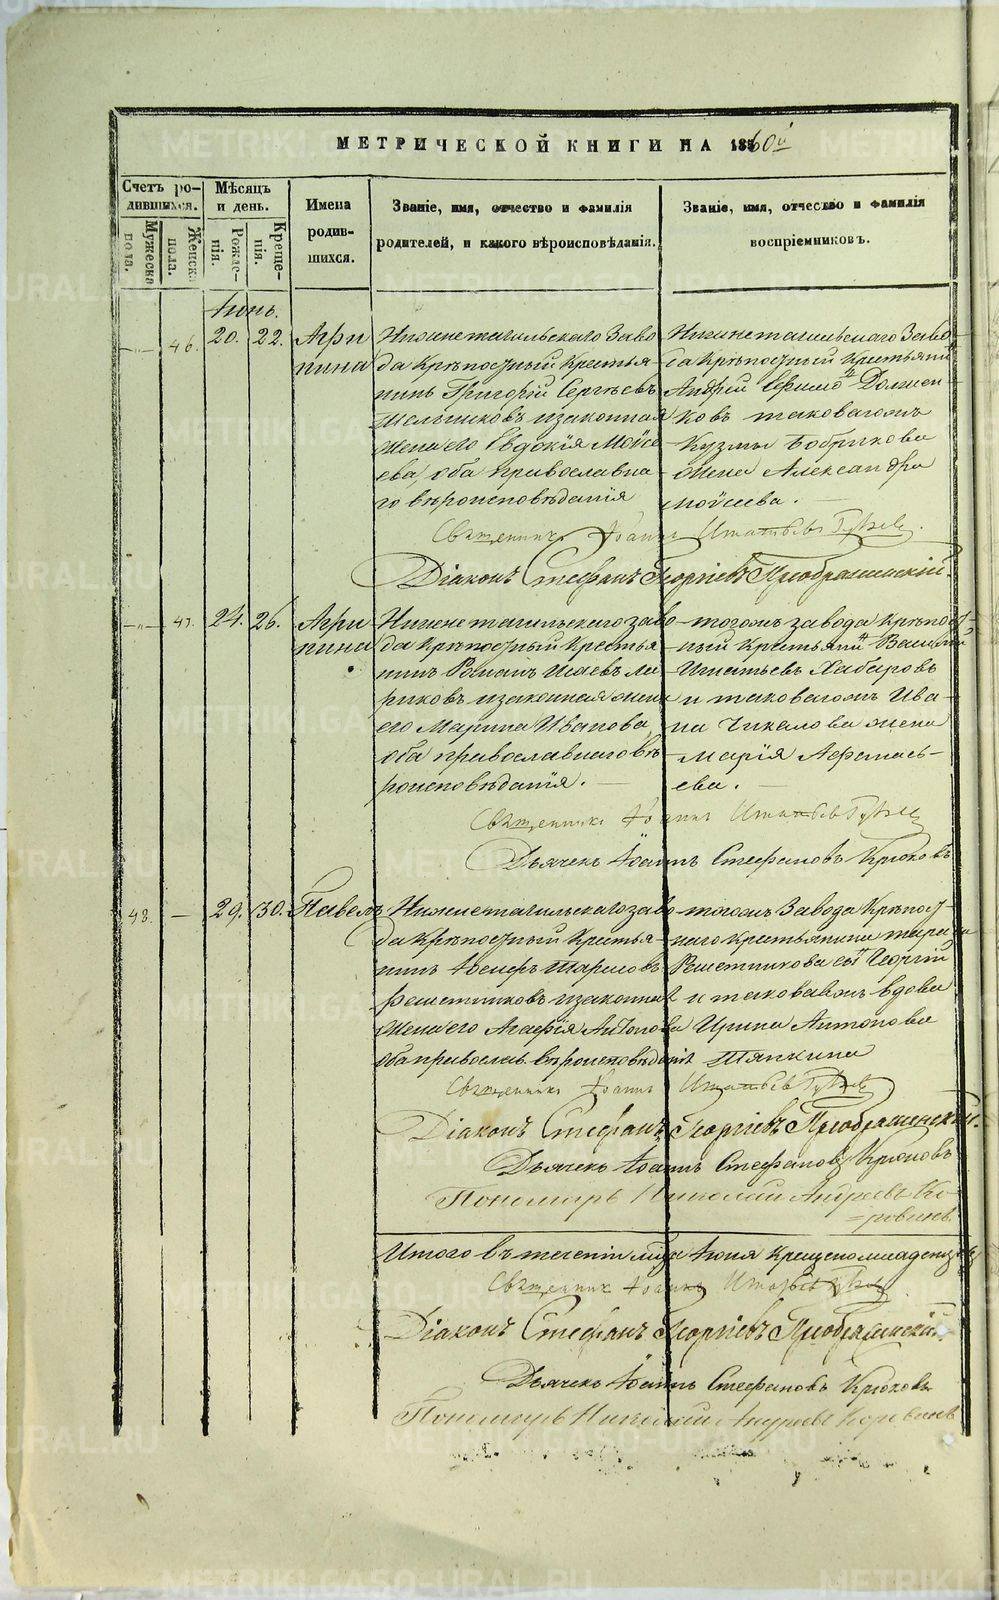 МЕТРИЧЕСКОЙ КНИГИ НА 1860й
Счетъ родившихся.
Мѣсяцъ и день.
Имена родившихся.
Званіе, имя, отчество и фамилія родителей, и какого вѣроисповѣданія.
Званіе, имя, отчество и фамилія воспріемниковъ.
Мужеска пола.
Женска пола.
Рожденія.
Крещенія.
Іюнь.
46. 20. 22. Агрипина
Нижнетагильскаго Заво
да Крѣпостный Крестья
нинъ Григорій Сергѣевъ
Мельниковъ и законная
жена его Евдокія Моисе
ева, оба православна
го вѣроисповѣданія
Нижнетагильскаго Заво
да Крѣпостный Крестьянинъ
Андрей
ковъ таковагожъ
Кузмы Бобрикова
жена Александра
Моисеева.
Священникъ Іоаннъ Игнатьевъ
Діаконъ Стефанъ Георгіевъ Преображенскій.
47. 24. 26. Агрипина
Нижнетагильскаго заво
да Крѣпостный Крестья
нинъ Романъ Исаевъ Ла
риковъ и законная жена
его Марина Иванова,
оба православнаго вѣ
роисповѣданія.
тогожъ завода Крѣпост
ный Крестьянинъ Василій
Игнатьевъ Хабаровъ
и таковагожъ Ива
на Чикалова жена
Марія Афанась
ева.
Священникъ Іоаннъ Игнатьевъ
Дьячекъ Іоаннъ Стефановъ Крюковъ
48. — 29. 30. Павелъ
Нижнетагильскаго заво
да Крѣпостный Крестья
нинъ Іосифъ Тарасовъ
Решетниковъ и законная
жена его Агафія Антонова
оба правосла. вѣроисповѣданія
тогожъ Завода Крѣпост
наго крестьянина Тараса
Решетникова сынъ Георгій
и таковаяжъ вдова
Ирина Антонова
Тяпкина
Священникъ Іоаннъ Игнатьевъ
Діаконъ Стефанъ Георгіевъ Преображенскій.
Дьячекъ Іоаннъ Стефановъ Крюковъ
Пономарь Николай Андреевъ Ко
ровинъ.
Итого въ теченіи мца Іюня Крещено младенцевъ
Священникъ Іоаннъ Игнатьевъ
Діаконъ Стефанъ Георгіевъ Преображенскій.
Дьячекъ Іоаннъ Стефановъ Крюковъ
Пономарь Николай Андреевъ Коровинъ
METRIKI.GASO-URAL.RU